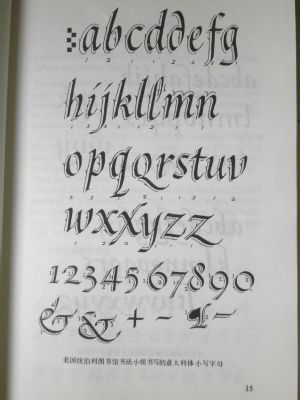 abcddefg
hijklllmn
opqQrstuv
wxxyzz
1234567890
&& + - ¶ -
美国纽伯利图书馆书法小组书写的意大利体小写字母
15